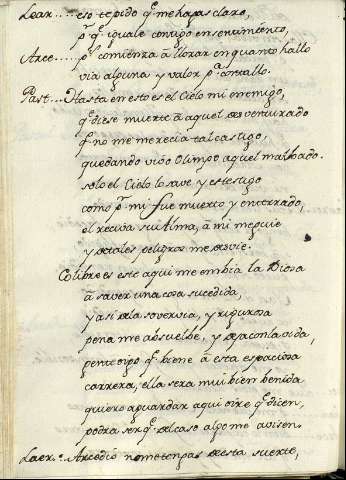 Lear.... eso te pido q.e me hagas claro,
p.r q.e iguale contigo en sentimiento,
Arce.... p.s comienza á llorar en quanto hallo
via alguna y valor p.a contallo.
Past... Hasta en esto es el Cielo mi enemigo,
q.e diese muerte á aquel desventurado
q.e no me merecia tal castigo,
quedando vivo Olimpo aquel malvado.
solo el Cielo lo save y es testigo
como p.r mi fue muerto y enterrado,
el reciva su Alma, á mi me guie
y de tales peligros me desvie.
Colibre es este aqui me embia la Diosa
á saver una cosa sucedida,
y asi de la sovervia, y rigurosa
pena me absuelbe, y deja con la vida,
gente oigo q.e biene á esta espaciosa
carrera, ella sera mui bien benida
quiero aguardar aqui oire q.e dicen,
podra ser q.e del caso algo me avisen.
Laer.. Arcedio no me tengas de esta suerte,